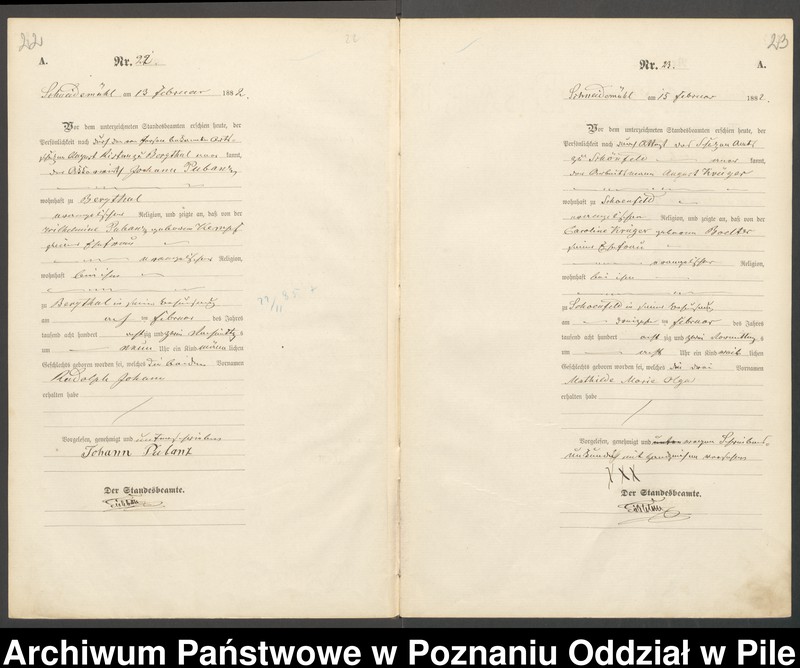 22
A.
Nr. 22.
Schneidemühl am 13 Februar 1882.
Vor dem unterzeichneten Standesbeamten erschien heute, der
Persönlichkeit nach durch den von Person bekannten Orts-
schulzen August zu Bergthal kannt,
der Johann Pubanz
wohnhaft zu Bergthal
evangelischer Religion, und zeigte an, daß von der
Wilhelmine Pubanz geborenen Kempf
seiner Ehefrau
evangelischer Religion,
wohnhaft bei ihm
zu Bergthal in seiner Behausung
am acht ten Februar des Jahres
tausend acht hundert achtzig und zwei Nachmittags
um neun Uhr ein Kind männlichen
Geschlechts geboren worden sei, welches die beiden Vornamen
Rudolph Johann
erhalten habe
Vorgelesen, genehmigt und unterschrieben
Johann Pubanz
Der Standesbeamte.
23
Nr. 23.
A.
Schneidemühl am 15 Februar 1882.
Vor dem unterzeichneten Standesbeamten erschien heute, der
Persönlichkeit nach durch Attest des Schulzen Amts
zu Schönfeld aner kannt,
der Arbeitsmann August Krüger
wohnhaft zu Schoenfeld
evangelischer Religion, und zeigte an, daß von der
Caroline Krüger geborenen Boelter
seiner Ehefrau
evangelischer Religion,
wohnhaft bei ihm
zu Schoenfeld in seiner Behausung
am dreizehn ten Februar des Jahres
tausend acht hundert achtzig und zwei Vormittags
um acht Uhr ein Kind weiblichen
Geschlechts geboren worden sei, welches die drei Vornamen
Mathilde Marie Olga
erhalten habe
Vorgelesen, genehmigt und wegen Schreibens-
unkunde mit Handzeichen versehen
XXX
Der Standesbeamte.
Archiwum Państwowe w Poznaniu Oddział w Pile